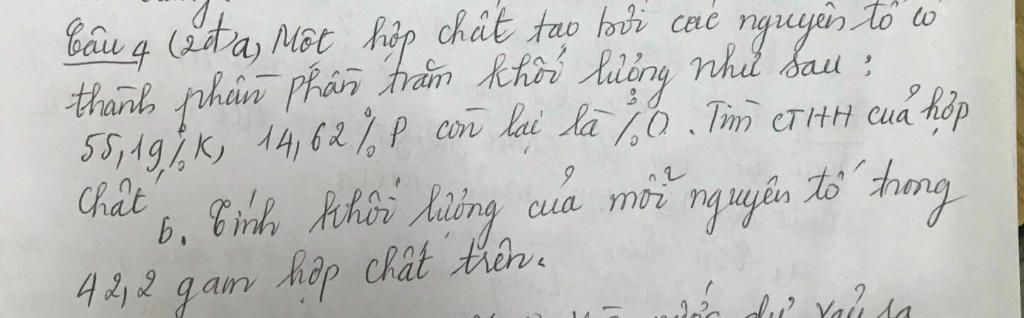 Câu 4 (2đ) a, Một hợp chất tạo bởi các nguyên tố có
thành phần phần trăm khối lượng như sau :
55,19% K, 14,62% P còn lại là %O. Tìm CTHH của hợp
chất
b. Tính khối lượng của mỗi nguyên tố trong
42,2 gam hợp chất trên.